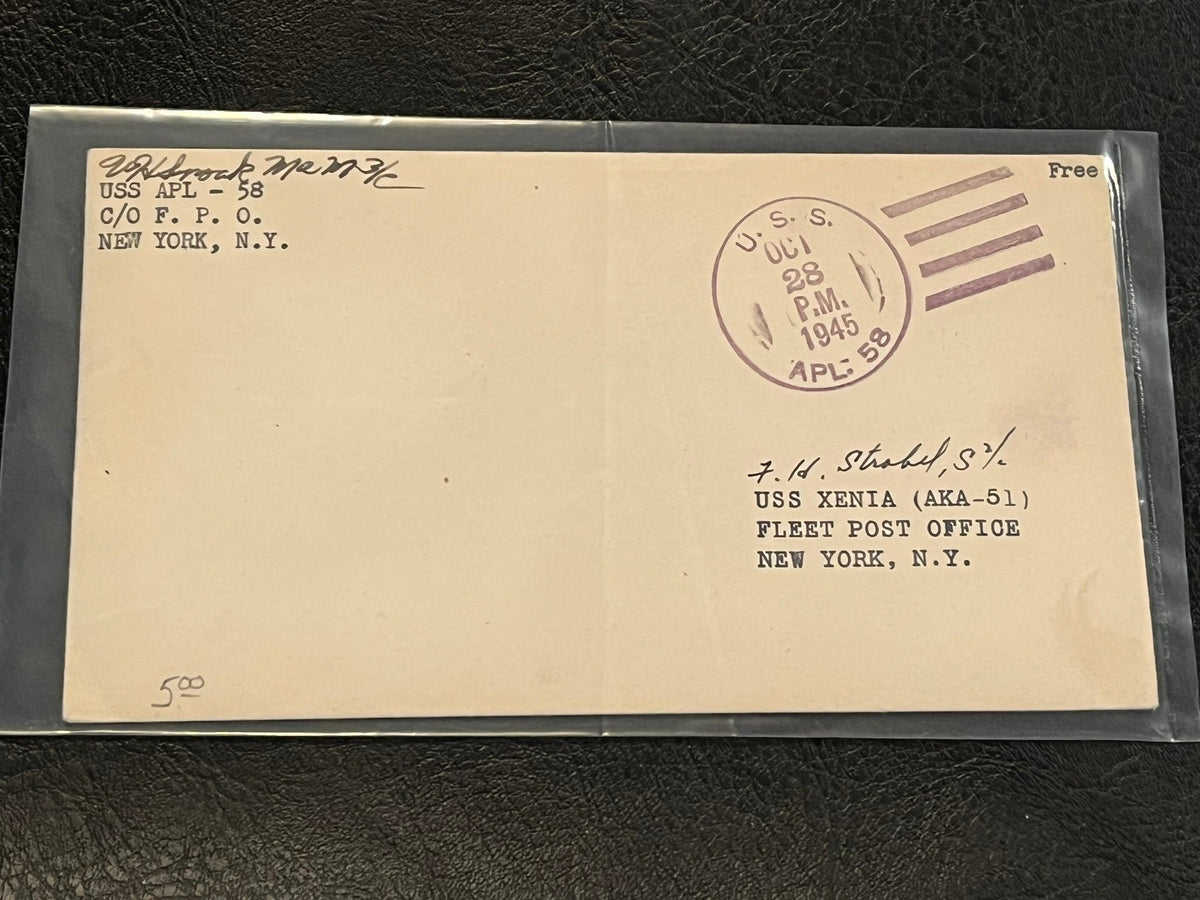 USS APL - 58
C/O F. P. O.
NEW YORK, N.Y.
Free
U. S. S.
OCT
28
P.M.
1945
APL: 58
F. H. Strobel, S 2/c
USS XENIA (AKA-51)
FLEET POST OFFICE
NEW YORK, N.Y.
5 00